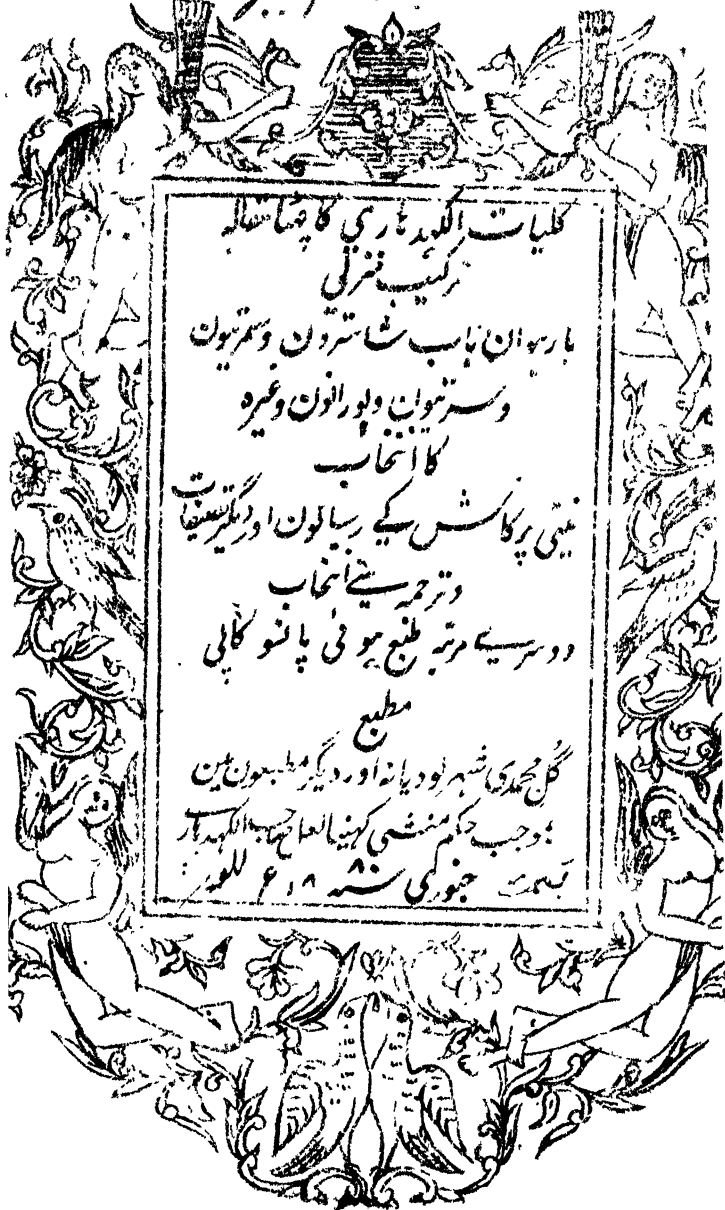 کلیات الکہہ دہاری کا چھٹا مقالہ
ترکیب
بارہوان باب شاسترون وسمرتیون
وسرتیون وپورانون وغیرہ
کا انتخاب
نیتی پرکاش کے رسالون اور دیگر تصنیفات
وترجمہ سے انتخاب
دوسرے مرتبہ طبع ہوئی پانسو کاپی
مطبع
گل محمدی شہر لودیانہ اور دیگر مطبعون مین
بموجب حکم منشی کنہیا لعل صاحب الکہہ دہاری
جنوری سنہ ۱۸ ء